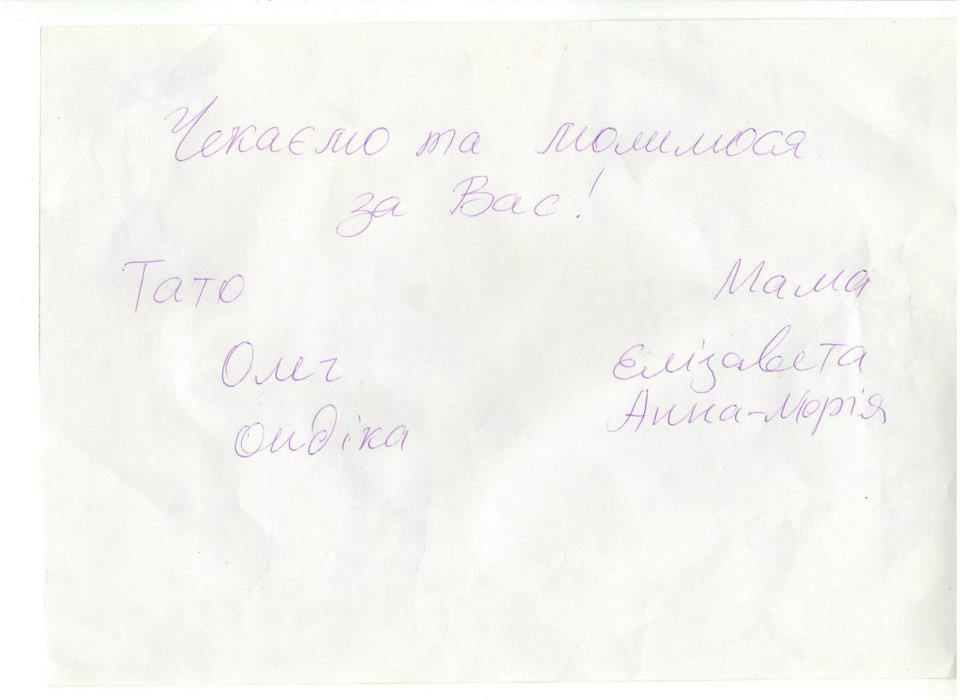 Чекаємо та молимося
за Вас!
Тато Мама
Олег Єлізавета
Анна-Марія